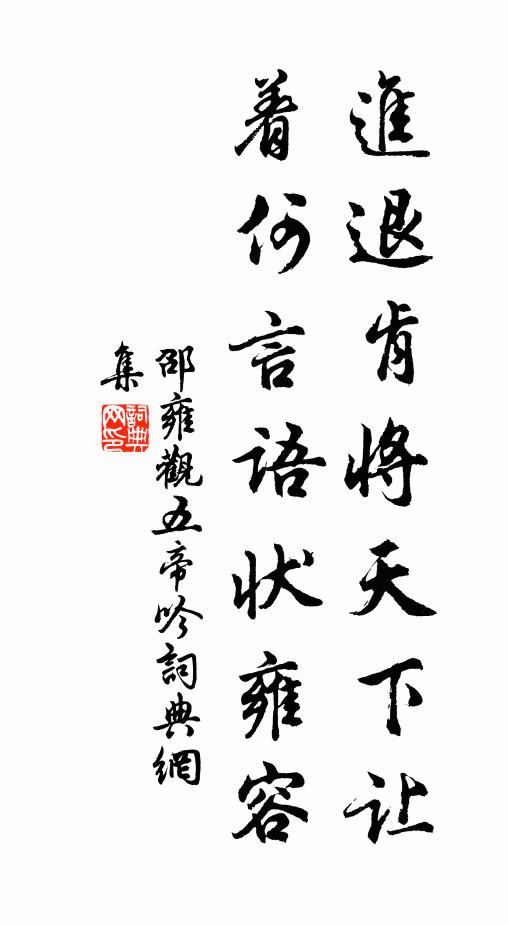 進退肯將天下让
着何言語状雍容
邵雍觀五帝吟詞典網
集
詞典
网印